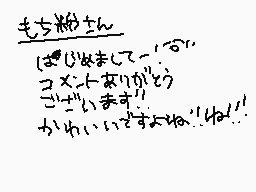 もち粉さん
はじめまして〜!
コメントありがとう
ございます!!
かわいいですよね!!ね!!!